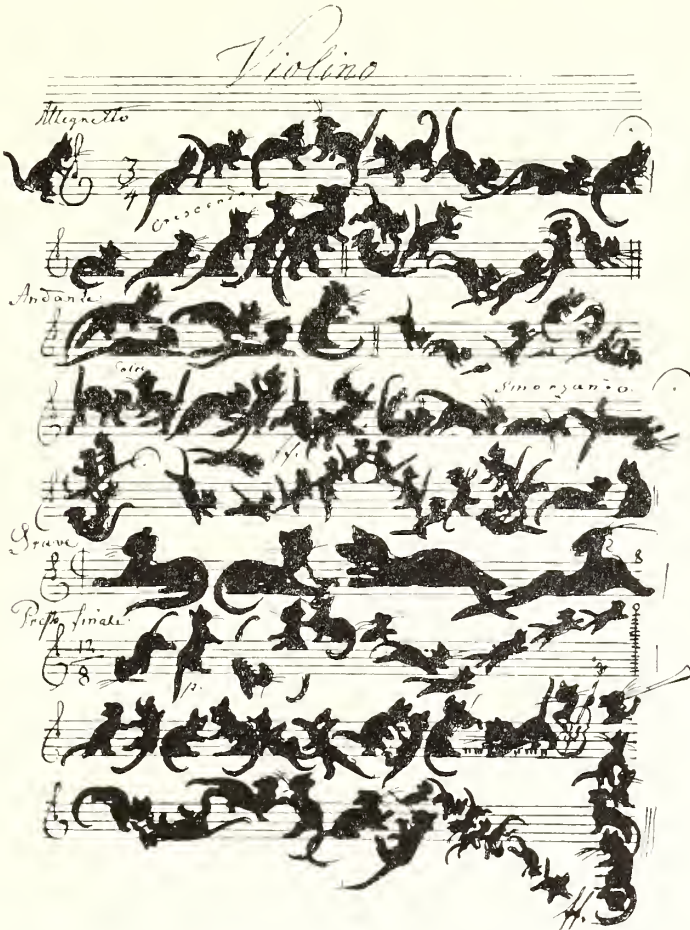 Violino
Allegretto
3
4
Crescendo
Andante
Smorzando.
Grave
2 8
Presto finale.
12
8
p.
ff.